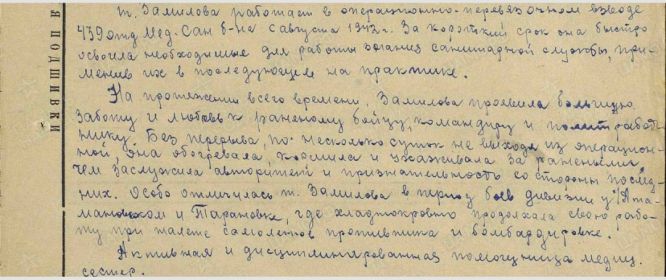 Я ПОДШИВКИ
т. Замилова работает в операционно-перевязочном взводе
439 отд. Мед. Сан. б-на с августа 1942 г. За короткий срок она быстро
освоила необходимые для работы знания санитарной службы, при-
менив их в последующем на практике.
На протяжении всего времени, Замилова проявила большую
заботу и любовь к раненому бойцу, командиру и политработ-
нику. Без перерыва, по несколько суток не выходя из операцион-
ной, она обогревала, кормила и ухаживала за ранеными,
чем заслужила авторитет и признательность со стороны послед-
них. Особо отличилась т. Замилова в период боев дивизии у Ата-
мановском и Тарановке, где хладнокровно продолжала свою рабо-
ту при налете самолетов противника и бомбардировке.
Активная и дисциплинированная помощница медиц.
сестер.